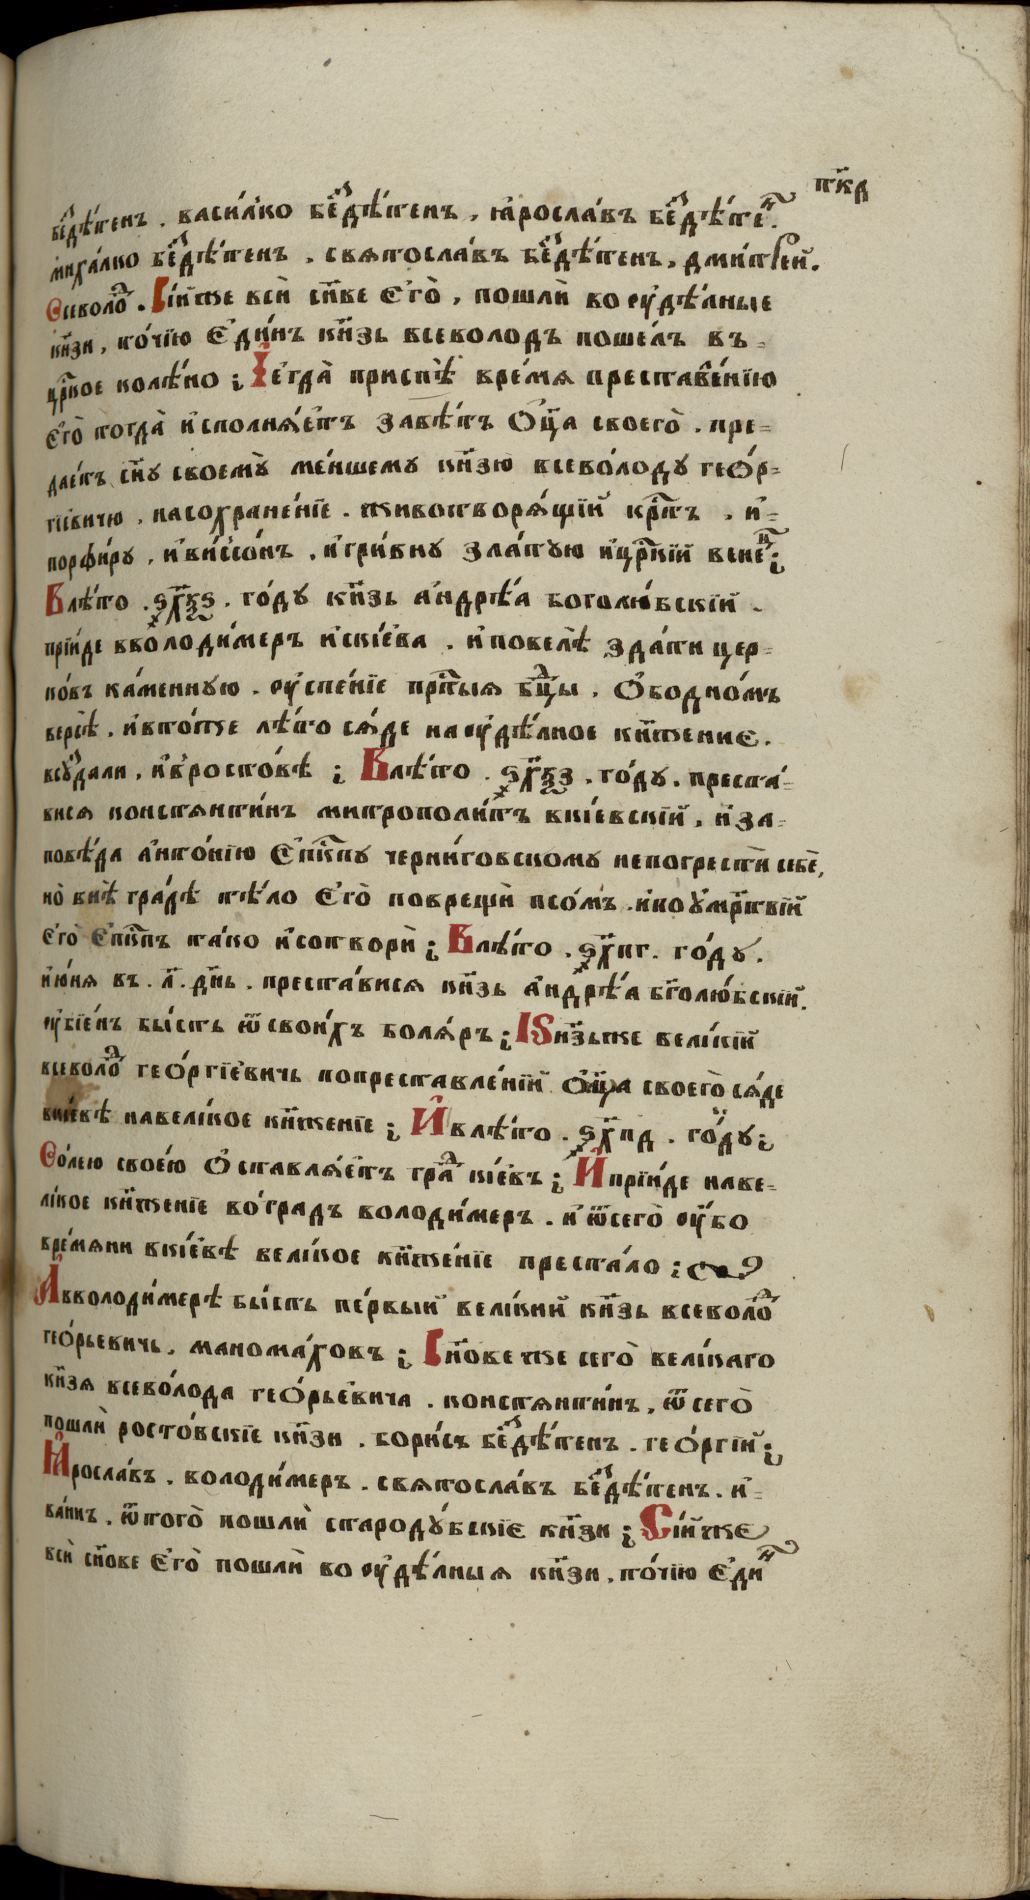 рк҃д
бе҃здѣ́тенъ . васи́лко бездѣ́тенъ , ꙗ҆росла́въ бездѣ́тен .
миха́лко бездѣ́тенъ , святосла́въ бездѣ́тенъ , дми́трей .
Всеволод . Сі́и же всѝ сн҃ве є҆го̀ , пошлѝ во ѹ҆дѣ́лные
кн҃зи , то́чїю є҆ди́нъ кн҃зь всеволодъ поше́лъ въ =
цр҃кое колѣ́но ; І҆ є҆гда̀ приспѣ̀ вре́мя преставле́нїю
є҆го̀ тогда̀ и҆сполня́етъ завѣ́тъ ѻ҆ц҃а своего̀ . пре=
дае́тъ сн҃у своемꙋ̀ ме́ншему кн҃зю всево́лоду геѻ́р=
гїевичю , насохране́нїе . животворя́щїй крт҃ъ . и҆=
порфи́ру , и҆ви́ссонъ , и҆гри́вну злату́ю и҆цр҃кїй вене́ц ;
Влѣ́то . ѕ҃хкѕ . го́ду кн҃зь а҆ндрѣ́а боголю́бскїй .
прїи́де вволоди́меръ и҆скі́ева . и҆повелѣ̀ зда́ти цер=
ковъ ка́менную . ѹ҆спе́нїе прт҃ыя бц҃ы . ѻ҆бодно́мъ
версѣ̀ . и҆вто́же лѣ́то ся́де наѹ҆дѣ́лное кн҃жение .
всу́здали , и҆вросто́вѣ ; Влѣ́то . ѕ҃хкз . го́ду . преста́=
вися констянти́нъ митрополи́тъ вкі́евскїй , и҆за=
повѣ́да а҆нто́нїю є҆пк҃пу черни́говскому непогрестѝ себѐ ,
но̀ внѣ̀ гра́дѣ тѣ́ло є҆го̀ поврещѝ псо́мъ . и҆поу҆мр҃твїй
є҆го̀ є҆пк҃пъ та́ко и҆сотворѝ ; Влѣ́то . ѕ҃хпг . го́ду .
и҆ю́ня въ . л҃ . дн҃ь . преста́вися кн҃зь а҆ндрѣ́а бг҃олю́бскїй .
ѹ҆бїе́нъ бы́сть ѿ свои́хъ боля́ръ ; Кн҃зь же вели́кїй
всеволод геѻ́ргїевичь попреставле́нїй ѻ҆ц҃а своего̀ ся́де
вкі́евѣ навели́кое кн҃женїе ; И҆влѣ́то . ѕ҃хпд . го́ду ;
Во́лею свое́ю ѻ҆ставля́етъ град кі́евъ ; И҆прїи́де наве=
ли́кое кн҃женїе во́градъ володи́меръ . и҆ ѿсего̀ ѹ҆́бо
вре́мяни вкі́евѣ вели́кое кн҃же́нїе преста́ло ;
А҆вволоди́мерѣ бы́сть пе́рвый вели́кий кн҃зь всеволод
геѻ́рьевичь , манома́ховъ ; Сн҃ове же сего̀ вели́каго
кн҃зя всево́лода геѻ́рьевича . констянти́нъ , ѿ сего̀
пошлѝ росто́вскїе кн҃зи . бори́съ бездѣ́тенъ . геѻ́ргїй ;
Ꙗ҆росла́въ . володи́меръ . святосла́въ бездѣ́тенъ . и҆=
ва́нъ . ѿтого̀ пошлѝ староду́бскїе кн҃зи ; Сі́и же
всѝ сн҃ове є҆го̀ пошлѝ во ѹ҆дѣ́лныя кн҃зи . то́чїю є҆дин